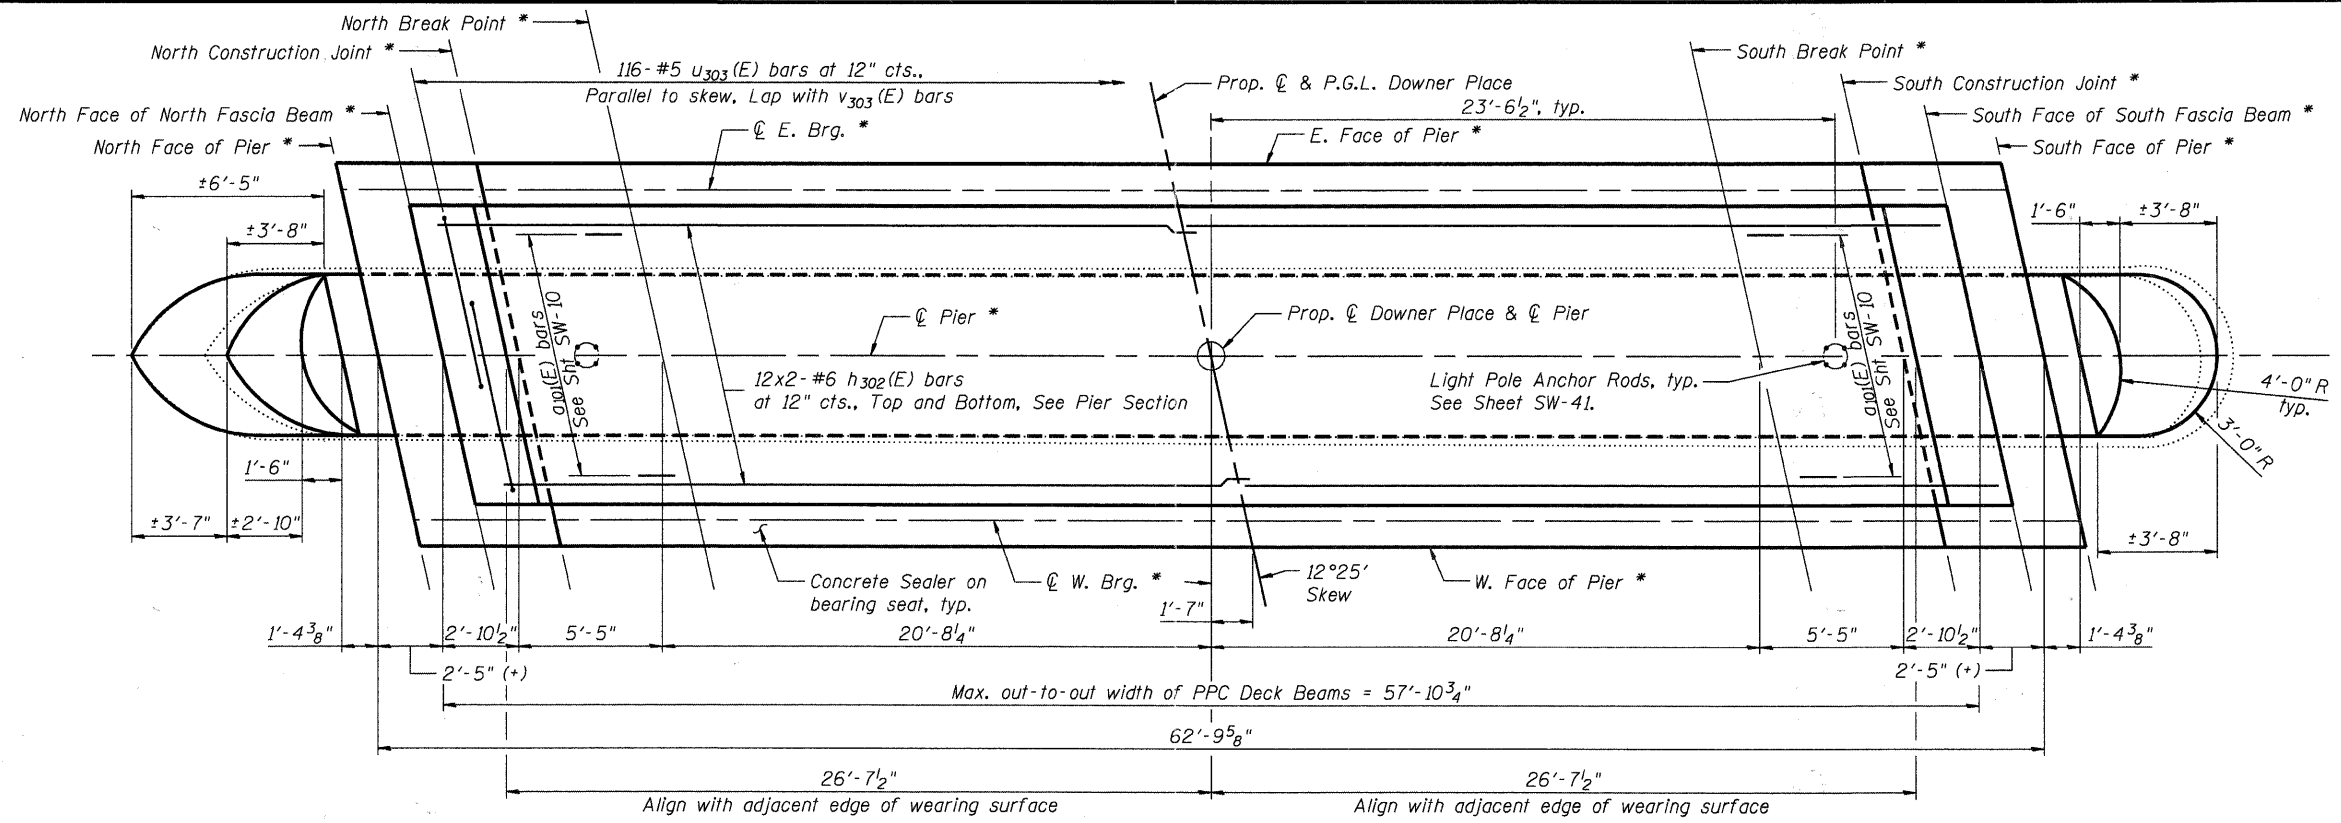 North Break Point *
North Construction Joint *
116-#5 u303(E) bars at 12" cts.,
Parallel to skew, Lap with v303(E) bars
North Face of North Fascia Beam *
North Face of Pier *
℄ E. Brg. *
Prop. ℄ & P.G.L. Downer Place
23'-6½", typ.
E. Face of Pier *
South Break Point *
South Construction Joint *
South Face of South Fascia Beam *
South Face of Pier *
±6'-5"
±3'-8"
1'-6"
±3'-8"
a101(E) bars
See Sht SW-10
℄ Pier *
Prop. ℄ Downer Place & ℄ Pier
a101(E) bars
See Sht SW-10
12x2-#6 h302(E) bars
at 12" cts., Top and Bottom, See Pier Section
Light Pole Anchor Rods, typ.
See Sheet SW-41.
4'-0" R
typ.
3'-0" R
1'-6"
±3'-7"
±2'-10"
±3'-8"
Concrete Sealer on
bearing seat, typ.
℄ W. Brg. *
1'-7"
12°25'
Skew
W. Face of Pier *
1'-4⅜"
2'-10½"
5'-5"
20'-8¼"
20'-8¼"
5'-5"
2'-10½"
1'-4⅜"
2'-5" (+)
2'-5" (+)
Max. out-to-out width of PPC Deck Beams = 57'-10¾"
62'-9⅝"
26'-7½"
Align with adjacent edge of wearing surface
26'-7½"
Align with adjacent edge of wearing surface